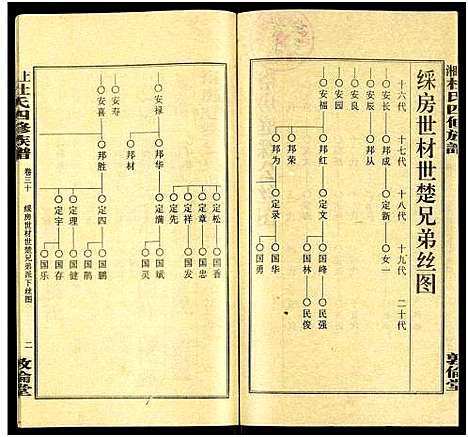 湘杜氏四修族譜
綵房世材世楚兄弟丝图
十六代 十七代 十八代 十九代 二十代
安长 邦成 定新 女一
安辰 邦从
安良
安园
安福 邦红 定文 国峰 民强
国林 民俊
邦荣
邦为 定录 国华
国勇
敦倫堂
安禄 邦华 定松 国香
定章 国忠
定祥 国发
定先
定满 国斌
国灵
邦材
安寿
安喜 邦胜 定四 国鹏
国鹊
定理 国健
国存
定宇 国乐
上杜氏四修族譜
卷三十
綵房世材世楚兄弟派下丝图
二
敦倫堂